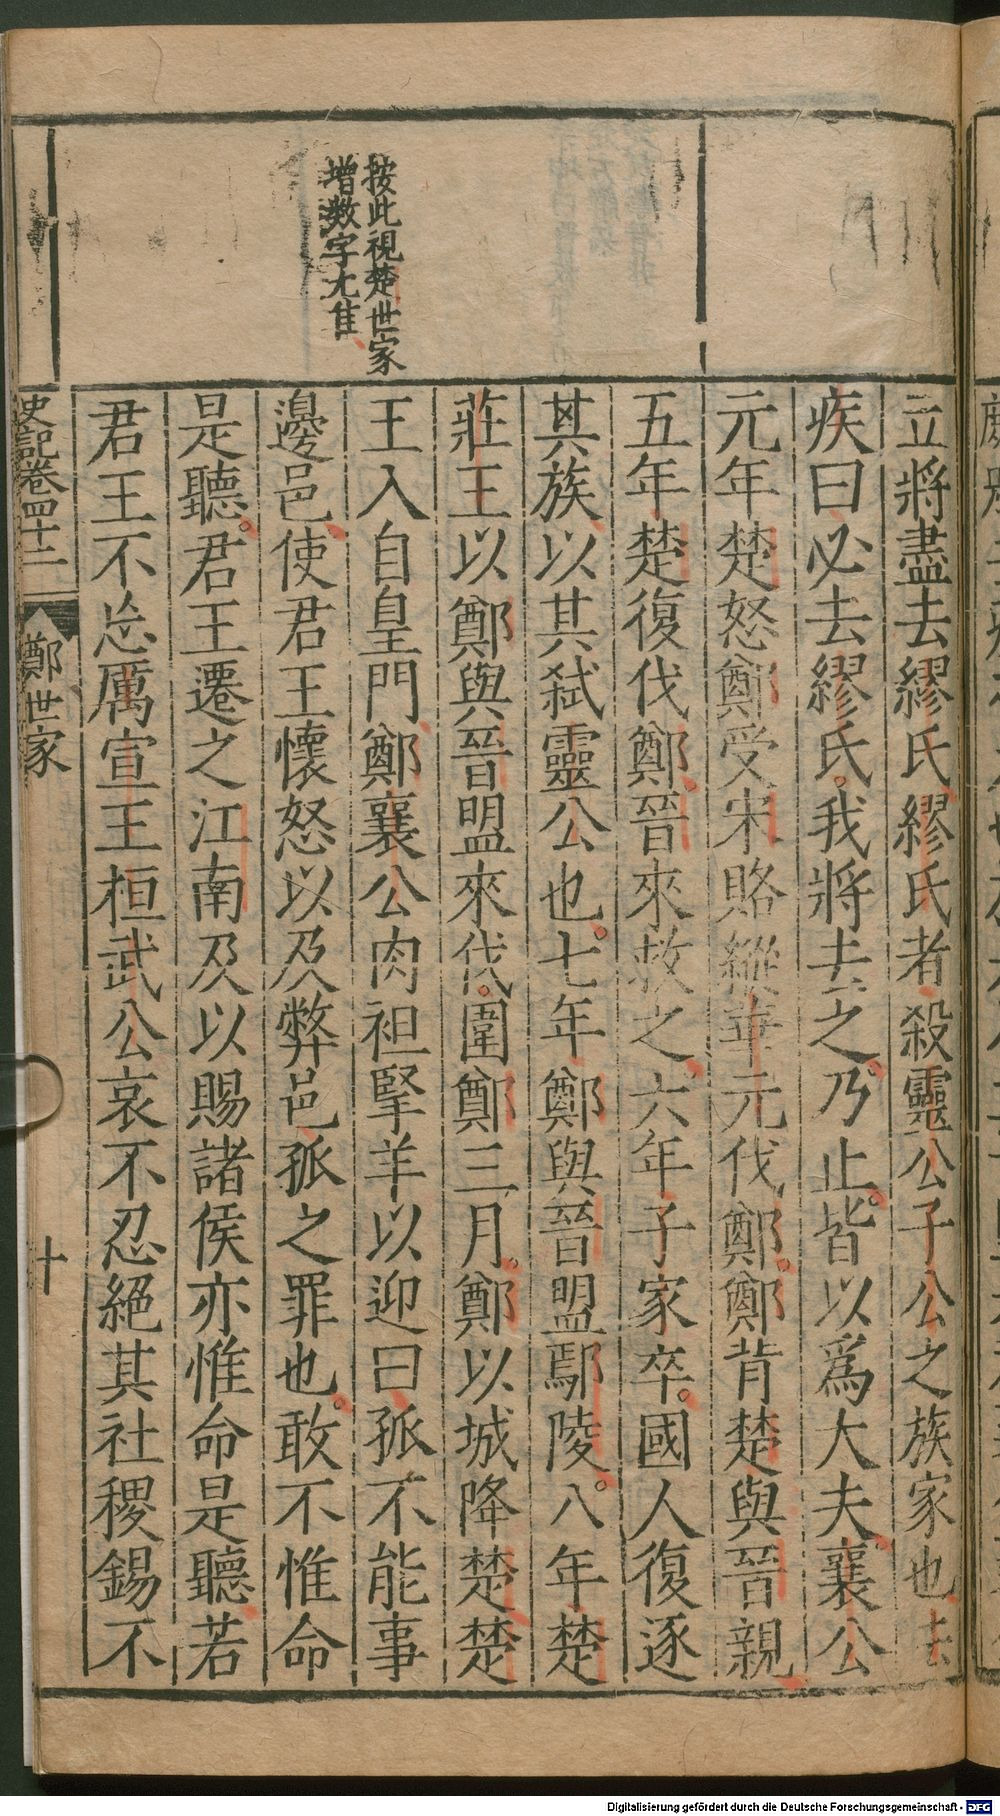 按此視楚世家
增数字尤佳
立將盡去繆氏繆氏者殺靈公子公之族家也去
疾曰必去繆氏我將去之乃止皆以爲大夫襄公
元年楚怒鄭受宋賂縱華元伐鄭鄭背楚與晉親
五年楚復伐鄭晉來救之六年子家卒國人復逐
其族以其弒靈公也七年鄭與晉盟鄢陵八年楚
莊王以鄭與晉盟來伐圍鄭三月鄭以城降楚楚
王入自皇門鄭襄公肉袒掔羊以迎曰孤不能事
邊邑使君王懷怒以及弊邑孤之罪也敢不惟命
是聽君王遷之江南及以賜諸侯亦惟命是聽若
君王不忘厲宣王桓武公哀不忍絕其社稷錫不
史記卷四十二
鄭世家
十
Digitalisierung gefördert durch die Deutsche Forschungsgemeinschaft - DFG